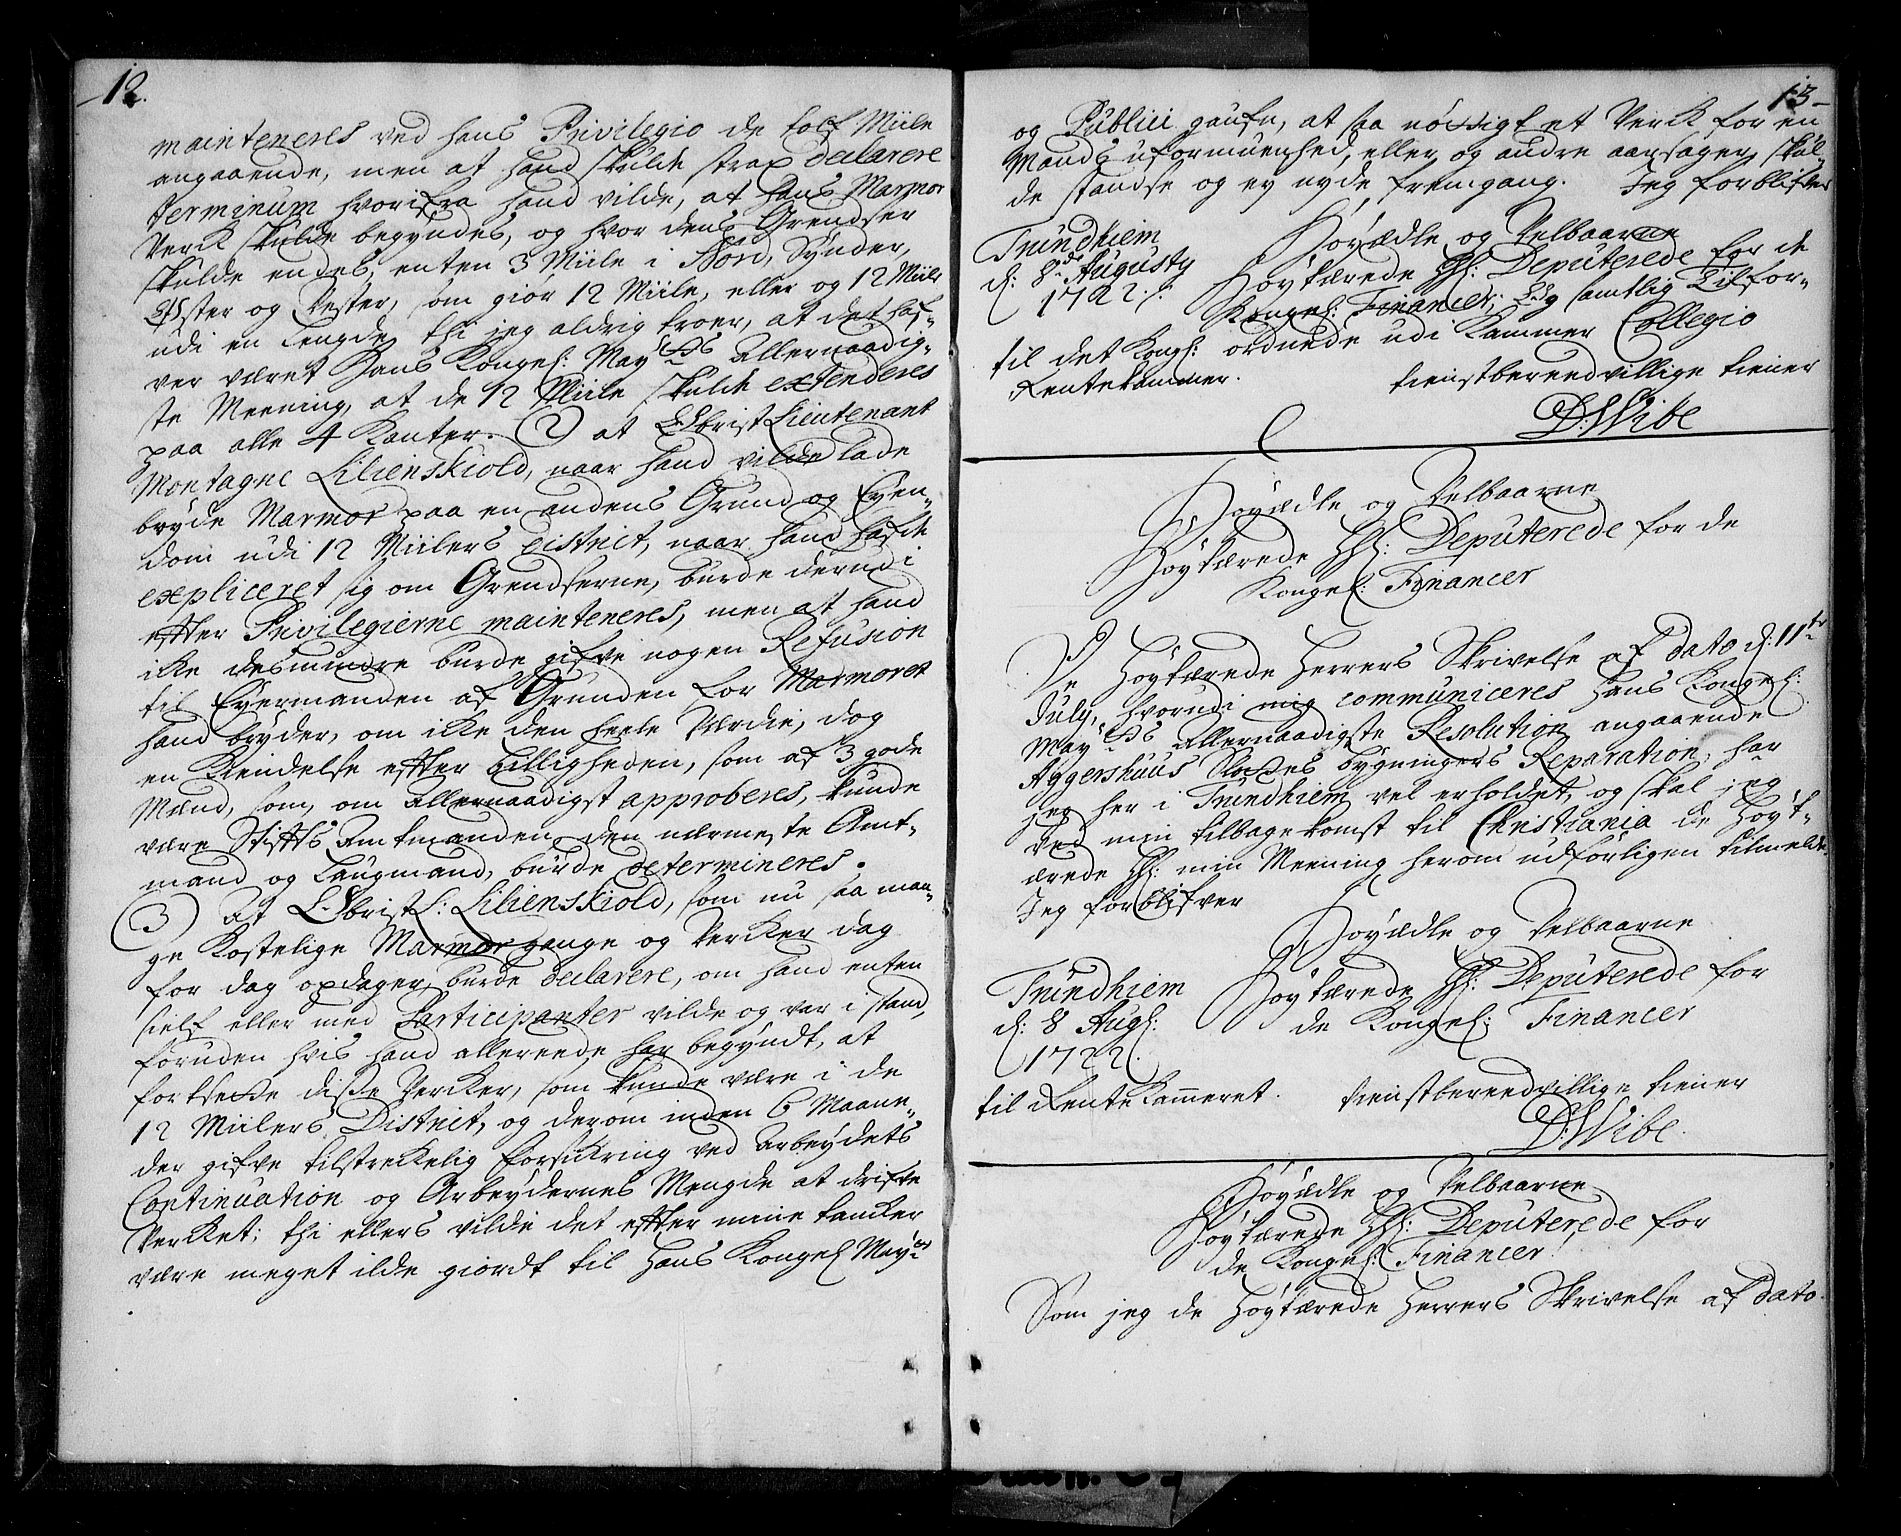 12.
mainteneres ved hans Privilegio de tolf Miile
angaaende, men at hand skulde strax declarere
terminum hvorifra hand vilde, at hans Marmor
Verck skulde begyndes, og hvor dens Grendser
skulde endes, enten 3 Miile i Nord, Synder,
Øster og Vester, som giør 12 Miile, eller og 12 Miile
udi en Lengde, thi jeg aldrig troer, at det haf-
ver været Hans Kongel: Mayts Allernaadig-
ste Meening, at de 12 Miile skulde extenderes
paa alle 4 Kanter. 2) at Obrist Lieutenant
Montagne Lilienskiold, naar hand vilde lade
bryde Marmor paa en andens Grund og Eyen-
dom udi 12 Miilers District, naar hand hafde
expliceret sig om Grendserne, burde derudi
efter Privilegierne mainteneres, men at hand
icke desmindre burde gifve nogen Refusion
til Eyermanden af Grunden for Marmoret
hand bryder, om icke den heele Værdie, dog
en Kiendelse efter billigheden, som af 3 gode
Mænd, som, om Allernaadigst approberes, kunde
være Stifts Amtmanden, den nærmeste Amt-
mand og Laugmand, burde determineres.
3) At Obristl: Lilienskiold, som nu saa man-
ge Kostelige Marmor gange og Vercker dag
for dag opdager, burde declarere, om hand enten
sielf eller med Participanter vilde og var i stand,
foruden hvis hand allereede har begyndt, at
fortsette disse Vercker, som kunde være i de
12 Miilers District, og derom inden 6 Maane-
der gifve tilstreckelig forsickring ved Arbeydets
Continuation og Arbeydernes Mengde at drifve
Vercket; thi ellers vilde det efter mine tancker
være meget ilde giordt til Hans Kongel Mayts
13
og Publici gaufn, at saa nøttigt et Verck for en
Mands uformuenhed, eller og andre aarsager skul-
de standse og ey nyde fremgang. Jeg forblifver
Trundhiem
d: 8de Augusty
1722.
Høyædle og Velbaarne
Høytærede HH: Deputerede for de
Kongel: Financer, Og samtlig Tilfor-
ordnede udi Kammer Collegio
til det Kongl:
Rentekammer.
tienstbereedvillige tiener
D: Wibe
Høyædle og Velbaarne
Høytærede HH: Deputerede for de
Kongel: Financer
De Høytærede Herrers Skrivelse af dato d: 11te
July, hvorudi mig communiceres Hans Kongel:
Mayts Allernaadigste Resolution angaaende
Aggershuus Slottes bygningers Reparation, har
jeg her i Trundhiem vel erholdet, og skal jeg
ved min tilbagekomst til Christiania de Høyt-
ærede HH: min Meening herom udførligen tilmelde.
Jeg forblifver
Høyædle og Velbaarne
Trundhiem
d: 8 Augl:
1722.
Høytærede HH: Deputerede for
de Kongel: Financer
til Rente Kammeret.
tienstbereedvillige tiener
D: Wibe.
Høyædle og Velbaarne
Høytærede HH: Deputerede for
de Kongel: Financer
Som jeg de Høytærede Herrers Skrivelse af dato